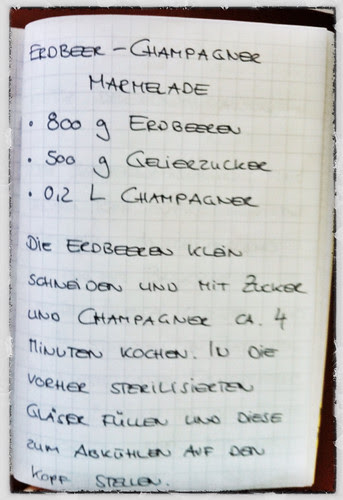 ERDBEER - CHAMPAGNER
MARMELADE
• 800 g ERDBEEREN
• 500 g GELIERZUCKER
• 0,2 L CHAMPAGNER
DIE ERDBEEREN KLEIN
SCHNEIDEN UND MIT ZUCKER
UND CHAMPAGNER CA. 4
MINUTEN KOCHEN. IN DIE
VORHER STERILISIERTEN
GLÄSER FÜLLEN UND DIESE
ZUM ABKÜHLEN AUF DEN
KOPF STELLEN.